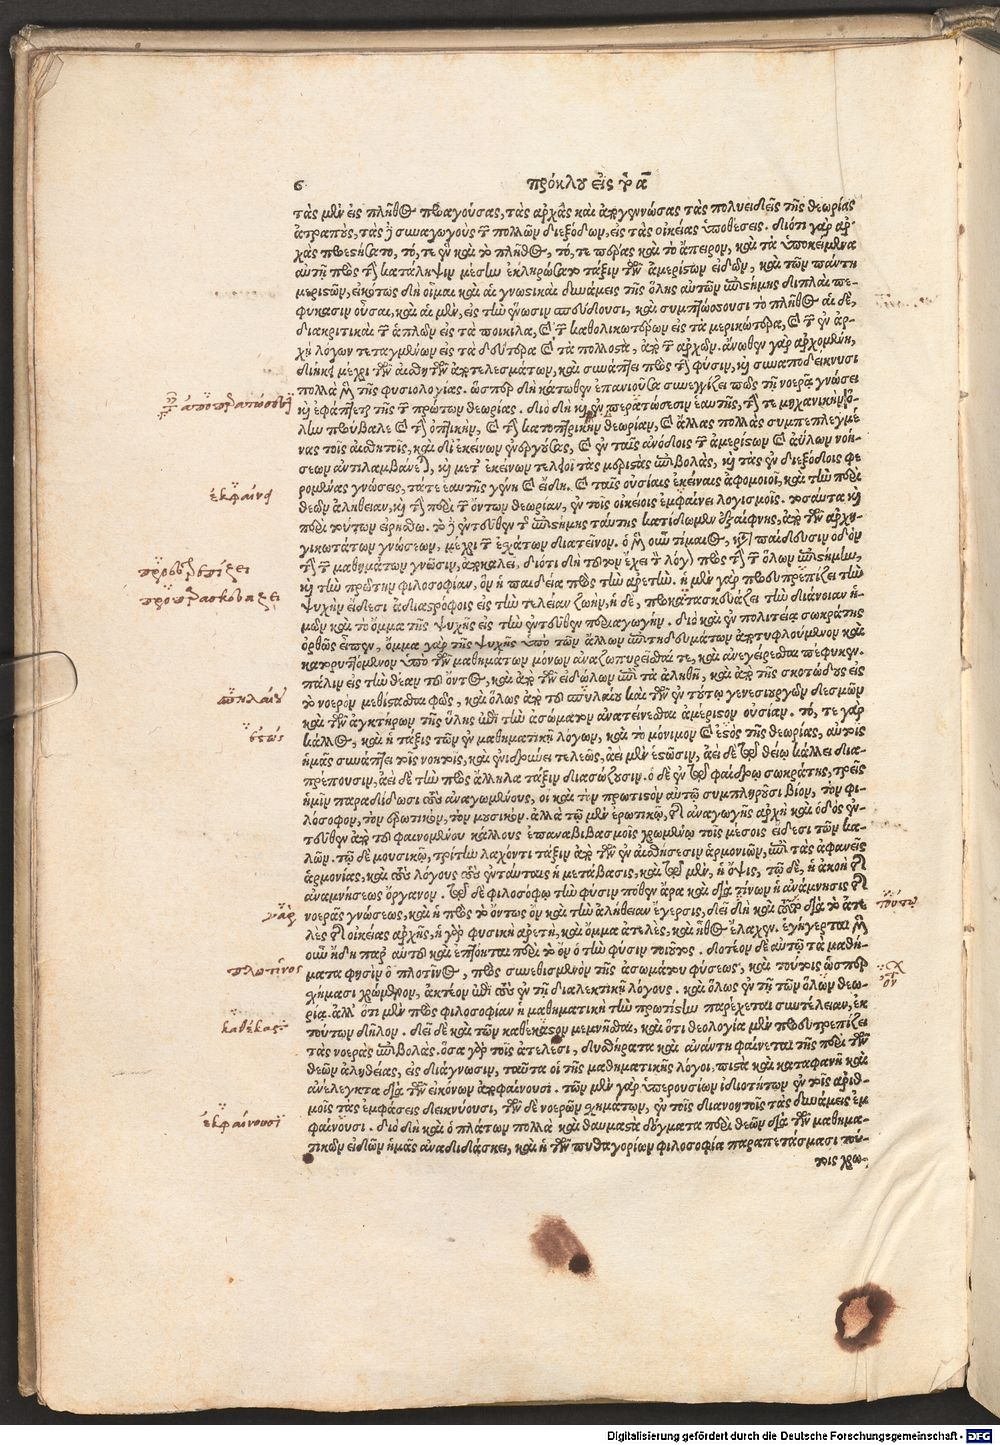 6 πρόκλου εἰς τὸ ᾱ
τὰς μὲν εἰς πλῆθος προαγούσας, τὰς ἀρχὰς καὶ ἀπογεννώσας τὰς πολυειδεῖς τῆς θεωρίας
ἀτραπούς, τὰς δὲ συναγωγοὺς τῶν πολλῶν διεξόδων, εἰς τὰς οἰκείας ὑποθέσεις. διότι γὰρ ἀρ-
χὰς προεστήσατο, τό, τε ἓν καὶ τὸ πλῆθος, τό, τε πέρας καὶ τὸ ἄπειρον, καὶ τὰ ὑποκείμενα
αὐτῇ πρὸς τὴν κατάληψιν μέσην ἐκληρώσατο τάξιν τῶν ἀμερίστων εἰδῶν, καὶ τῶν πάντη
μεριστῶν, εἰκότως δὴ οἶμαι καὶ αἱ γνωστικαὶ δυνάμεις τῆς ὅλης αὐτῶν ἐπιστήμης διπλαῖ πε-
φύκασιν οὖσαι, καὶ αἱ μὲν, εἰς τὴν ἕνωσιν σπεύδουσι, καὶ συμπτύσσουσι τὸ πλῆθος αἱ δὲ,
διακριτικαὶ τῶν ἁπλῶν εἰς τὰ ποικίλα, καὶ τῶν καθολικωτέρων εἰς τὰ μερικώτερα, καὶ τῶν ἐν ἀρ-
χῇ λόγων τεταγμένων εἰς τὰ δεύτερα καὶ τὰ πολλοστὰ, ἀπὸ τῶν ἀρχῶν. ἄνωθεν γὰρ ἀρχομένη,
διήκει μέχρι τῶν αἰσθητῶν ἀποτελεσμάτων, καὶ συνάπτει πρὸς τὴν φύσιν, καὶ συναποδείκνυσι
πολλὰ μετὰ τῆς φυσιολογίας. ὥσπερ δὴ κάτωθεν ἐπανιοῦσα συνεγγίζει πως τῇ νοερᾷ γνώσει
καὶ ἐφάπτεται τῆς τῶν πρώτων θεωρίας. διὸ δὴ καὶ ἐν περατώσεσιν ἑαυτῆς, τήν τε μηχανικὴν ὅ-
λην προύβαλε καὶ τὴν ὀπτικὴν, καὶ τὴν κατοπτρικὴν θεωρίαν, καὶ ἄλλας πολλὰς συμπεπλεγμέ-
νας τοῖς αἰσθητοῖς, καὶ δι' ἐκείνων ἐνεργούσας, καὶ ἐν ταῖς ἀνόδοις τῶν ἀμερίστων καὶ ἀΰλων νοή-
σεων ἀντιλαμβάνεται, καὶ μετ' ἐκείνων τελειοῖ τὰς μεριστὰς ἐπιβολὰς, καὶ τὰς ἐν διεξόδοις φε
ρομένας γνώσεις, τά τε ἑαυτῆς γένη καὶ εἴδη. καὶ ταῖς οὐσίαις ἐκείναις ἀφομοιοῖ, καὶ τὴν περὶ
θεῶν ἀλήθειαν, καὶ τὴν περὶ τῶν ὄντων θεωρίαν, ἐν τοῖς οἰκείοις ἐμφαίνει λογισμοῖς. τοσαῦτα καὶ
περὶ τούτων εἰρήσθω. τὸ δὲ ἐντεῦθεν τῆς ἐπιστήμης ταύτης κατίδωμεν ἐξαίφνης, ἀπὸ τῶν ἀρχη-
γικωτάτων γνώσεων, μέχρι τῶν ἐσχάτων διατεῖνον. ὁ μὲν οὖν τίμαιος, κατὰ παίδευσιν ὁδὸν
τὴν τῶν μαθημάτων γνῶσιν, ἀποκαλεῖ, διότι δὴ τοῦτον ἔχει τὸν λόγον πρὸς τὴν τῶν ὅλων ἐπιστήμην,
καὶ τὴν πρώτην φιλοσοφίαν, ὃν ἡ παιδεία πρὸς τὴν ἀρετήν. ἡ μὲν γὰρ προευτρεπίζει τὴν
ψυχὴν εἴδεσι ἀδιαστρόφοις εἰς τὴν τελείαν ζωὴν, ἡ δὲ, προκατασκευάζει τὴν διάνοιαν ἡ-
μῶν καὶ τὸ ὄμμα τῆς ψυχῆς εἰς τὴν ἐντεῦθεν περιαγωγήν. διὸ καὶ ἐν πολιτείᾳ σωκράτης
ὀρθῶς εἶπεν, ὄμμα γὰρ τῆς ψυχῆς ὑπὸ τῶν ἄλλων ἐπιτηδευμάτων ἀποτυφλούμενον καὶ
κατορυττόμενον ὑπὸ τῶν μαθημάτων μόνων ἀναζωπυρεῖσθαί τε, καὶ ἀνεγείρεσθαι πέφυκεν.
πάλιν εἰς τὴν θέαν τοῦ ὄντος, καὶ ἀπὸ τῶν εἰδώλων ἐπὶ τὰ ἀληθῆ, καὶ ἀπὸ τῆς σκοτώδους εἰς
τὸ νοερὸν μεθίστασθαι φῶς, καὶ ὅλως ἀπὸ τοῦ σπηλαίου καὶ τῶν ἐν τούτῳ γενεσιουργῶν δεσμῶν
καὶ τῶν ἀγκτήρων τῆς ὕλης ἐπὶ τὴν ἀσώματον ἀνατείνεσθαι ἀμέριστον οὐσίαν. τό, τε γὰρ
κάλλος, καὶ ἡ τάξις τῶν ἐν μαθηματικῇ λόγων, καὶ τὸ μόνιμον καὶ ἑστὸς τῆς θεωρίας, αὐτοῖς
ἡμᾶς συνάπτει τοῖς νοητοῖς, καὶ ἐνιδρύει τελεώς, ἀεὶ μὲν ἑστῶσιν, ἀεὶ δὲ τῷ θείῳ κάλλει δια-
πρέπουσιν, ἀεὶ δὲ τὴν πρὸς ἄλληλα τάξιν διασώζουσιν. ὁ δὲ ἐν τῷ φαίδρῳ σωκράτης, τρεῖς
ἡμῖν παραδίδωσι τοὺς ἀναγωμένους, οἳ καὶ τὸν πρώτιστον αὐτῷ συμπληροῦσι βίον, τὸν φι-
λόσοφον, τὸν ἐρωτικὸν, τὸν μουσικόν. ἀλλὰ τῷ μὲν ἐρωτικῷ, τῆς ἀναγωγῆς ἀρχὴ καὶ ὁδὸς ἐν-
τεῦθεν ἀπὸ τοῦ φαινομένου κάλλους ἐπαναβιβασμοῖς χρωμένῳ τοῖς μέσοις εἴδεσι τῶν κα-
λῶν. τῷ δὲ μουσικῷ, τρίτην λαχόντι τάξιν ἀπὸ τῶν ἐν αἰσθήσεσιν ἁρμονιῶν, ἐπὶ τὰς ἀφανεῖς
ἁρμονίας, καὶ τοὺς λόγους τοὺς ἐν ταύταις ἡ μετάβασις, καὶ τῷ μὲν, ἡ ὄψις, τῷ δὲ, ἡ ἀκοὴ τῆς
ἀναμνήσεως ὄργανον. τῷ δὲ φιλοσόφῳ τὴν φύσιν πόθεν ἄρα καὶ διὰ τίνων ἡ ἀνάμνησις τῆς
νοερᾶς γνώσεως, καὶ ἡ πρὸς τὸ ὄντως ὂν καὶ τὴν ἀλήθειαν ἔγερσις, δεῖ δὴ καὶ τοῦτο διὰ τὸ ἀτε
λὲς τῆς οἰκείας ἀρχῆς, ἡ γὰρ φυσικὴ ἀρετὴ, καὶ ὄμμα ἀτελὲς, καὶ ἦθος ἔλαχεν. ἐγήγερται μὲν
οὖν ἤδη παρ' αὐτοῦ καὶ ἐπτόηται περὶ τὸ ὂν ὁ τὴν φύσιν τοιοῦτος. δοτέον δὲ αὐτῷ τὰ μαθή-
ματα φησὶν ὁ πλοτῖνος, πρὸς συνεθισμὸν τῆς ἀσωμάτου φύσεως, καὶ τούτοις ὥσπερ
σχήμασι χρώμενον, ἀκτέον ἐπὶ τοὺς ἐν τῇ διαλεκτικῇ λόγους. καὶ ὅλως ἐν τῇ τῶν ὅλων θεω-
ρίᾳ. ἀλλ' ὅτι μὲν πρὸς φιλοσοφίαν ἡ μαθηματικὴ τὴν πρωτίστην παρέχεται συντέλειαν, ἐκ
τούτων δῆλον. δεῖ δὲ καὶ τῶν καθέκαστον μεμνῆσθαι, καὶ ὅτι θεολογία μὲν προευτρεπίζει
τὰς νοερὰς ἐπιβολὰς. ὅσα γὰρ τοῖς ἀτελέσι, δυσθήρατα καὶ ἀνάντη φαίνεται τῆς περὶ τῶν
θεῶν ἀληθείας, εἰς διάγνωσιν, ταῦτα οἱ τῆς μαθηματικῆς λόγοι, πιστὰ καὶ καταφανῆ καὶ
ἀνέλεγκτα διὰ τῶν εἰκόνων ἀποφαίνουσι. τῶν μὲν γὰρ ὑπερουσίων ἰδιοτήτων ἐν τοῖς ἀριθ-
μοῖς τὰς ἐμφάσεις δεικνύουσι, τῶν δὲ νοερῶν σχημάτων, ἐν τοῖς διανοητοῖς τὰς δυνάμεις ἐμ
φαίνουσι. διὸ δὴ καὶ ὁ πλάτων πολλὰ καὶ θαυμαστὰ δόγματα περὶ θεῶν διὰ τῶν μαθημα-
τικῶν εἰδῶν ἡμᾶς ἀναδιδάσκει, καὶ ἡ τῶν πυθαγορίων φιλοσοφία παραπετάσμασι τού-
τοις χρω-
ἐκφαίνει
σπηλαίου
ἑστὼς
γὰρ
πλωτῖνος
καθέκαστα
ἐκφαίνουσι
τούτῳ